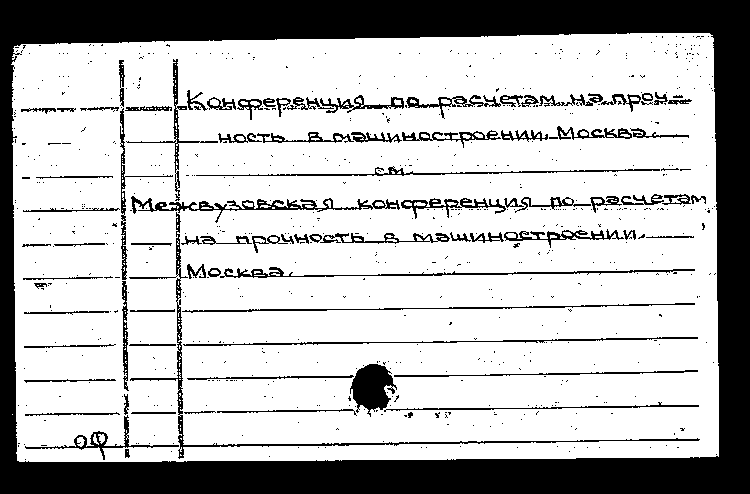 Конференция по расчетам на проч-
ность в машиностроении. Москва.
см.
Межвузовская конференция по расчетам
на прочность в машиностроении.
Москва.
оф